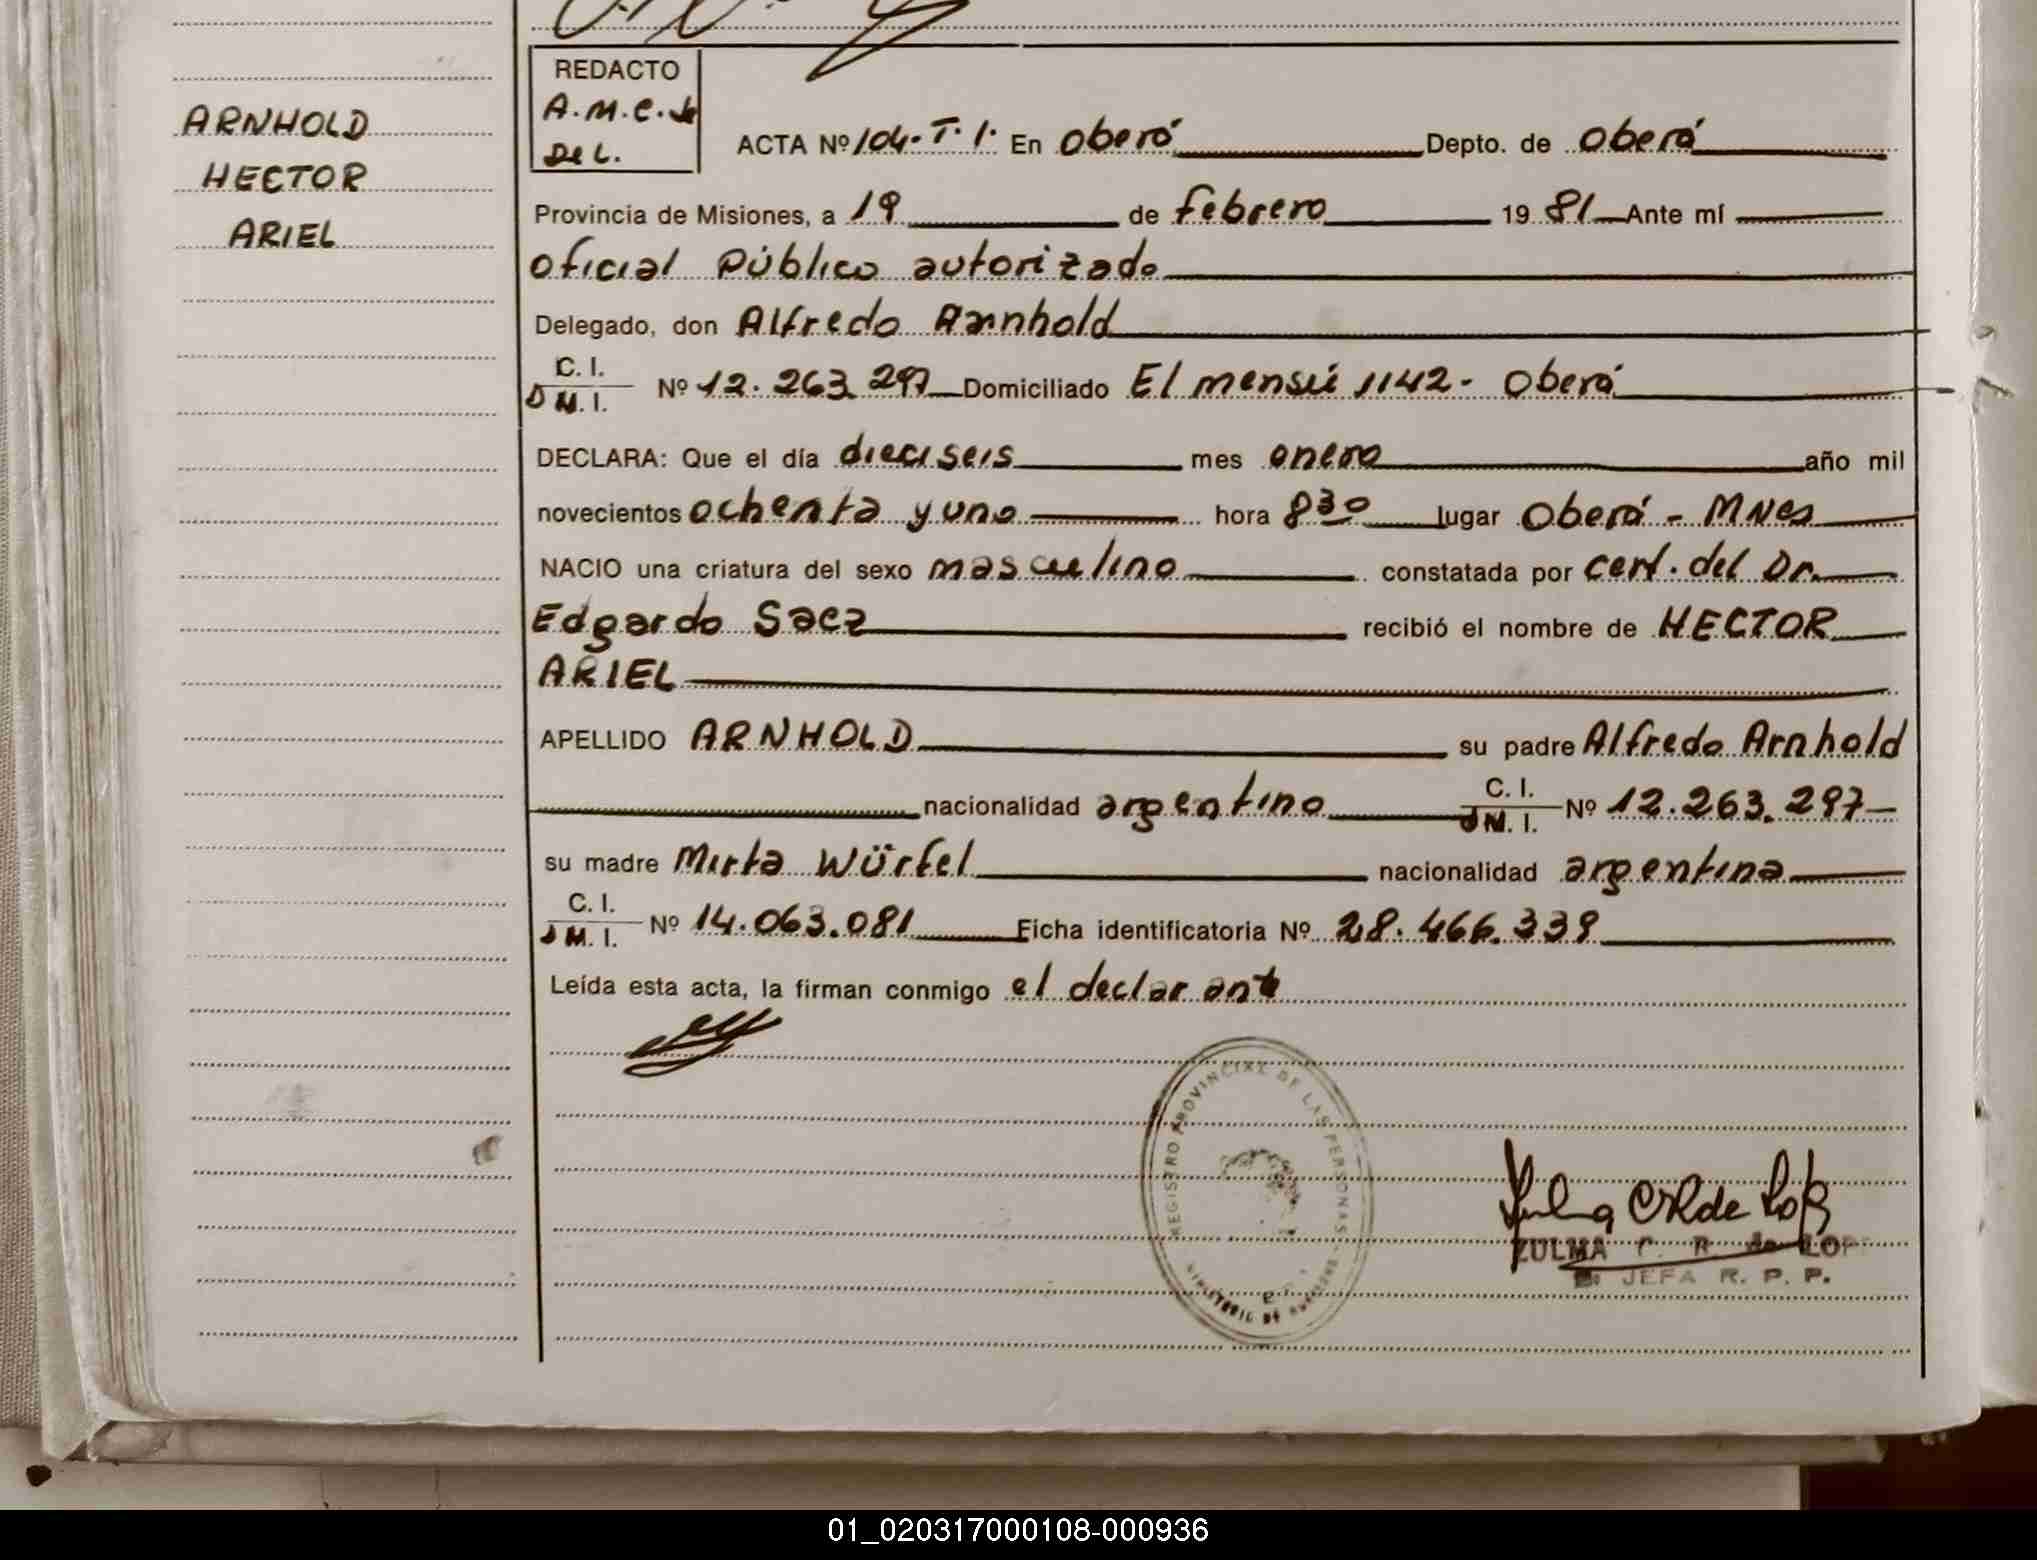 ARNHOLD
HECTOR
ARIEL
REDACTO
A.M.C. de
De L.
ACTA Nº 104-T.I. En Oberá Depto. de Oberá
Provincia de Misiones, a 19 de febrero 19 81 Ante mí
oficial Público autorizado
Delegado, don Alfredo Arnhold
C. I.
D M. I. Nº 12.263.297 Domiciliado El mensú 1142- Oberá
DECLARA: Que el día dieciseis mes enero año mil
novecientos ochenta y uno hora 8 30 lugar Oberá - Mnes
NACIO una criatura del sexo masculino constatada por cert. del Dr.
Edgardo Saez recibió el nombre de HECTOR
ARIEL
APELLIDO ARNHOLD su padre Alfredo Arnhold
nacionalidad argentino C. I. D M. I. Nº 12.263.297
su madre Mirta Würfel nacionalidad argentina
C. I. D M. I. Nº 14.063.081 Ficha identificatoria Nº 28.466.339
Leída esta acta, la firman conmigo el declarante
REGISTRO PROVINCIAL DE LAS PERSONAS
MINISTERIO DE
ZULMA C. R. de LOP
JEFA R. P. P.
01_020317000108-000936